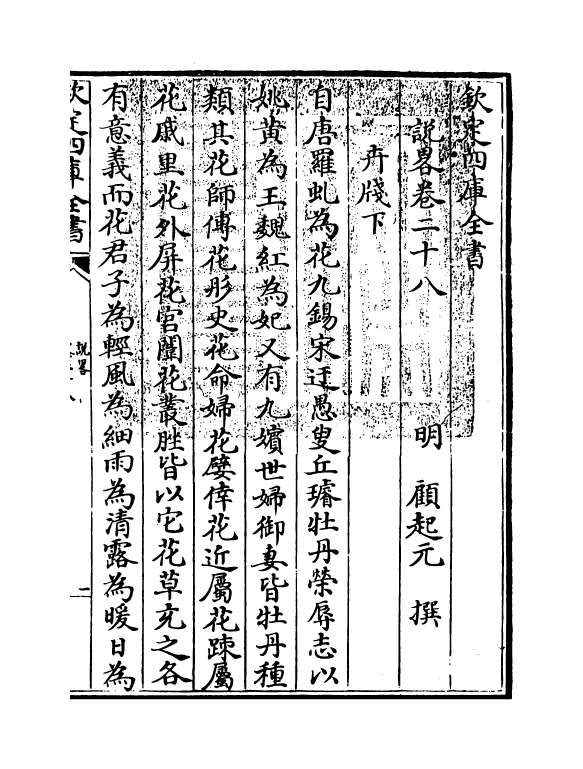 欽定四庫全書
說畧卷二十八
明 顧起元 撰
卉牋下
自唐羅虬為花九錫宋迂愚叟丘璿牡丹榮辱志以
姚黃為王魏紅為妃又有九嬪世婦御妻皆牡丹種
類其花師傅花彤史花命婦花嬖倖花近屬花踈屬
花戚里花外屏花宫闈花叢脞皆以它花草充之各
有意義而花君子為輕風為細雨為清露為暖日為
欽定四庫全書
說畧
二